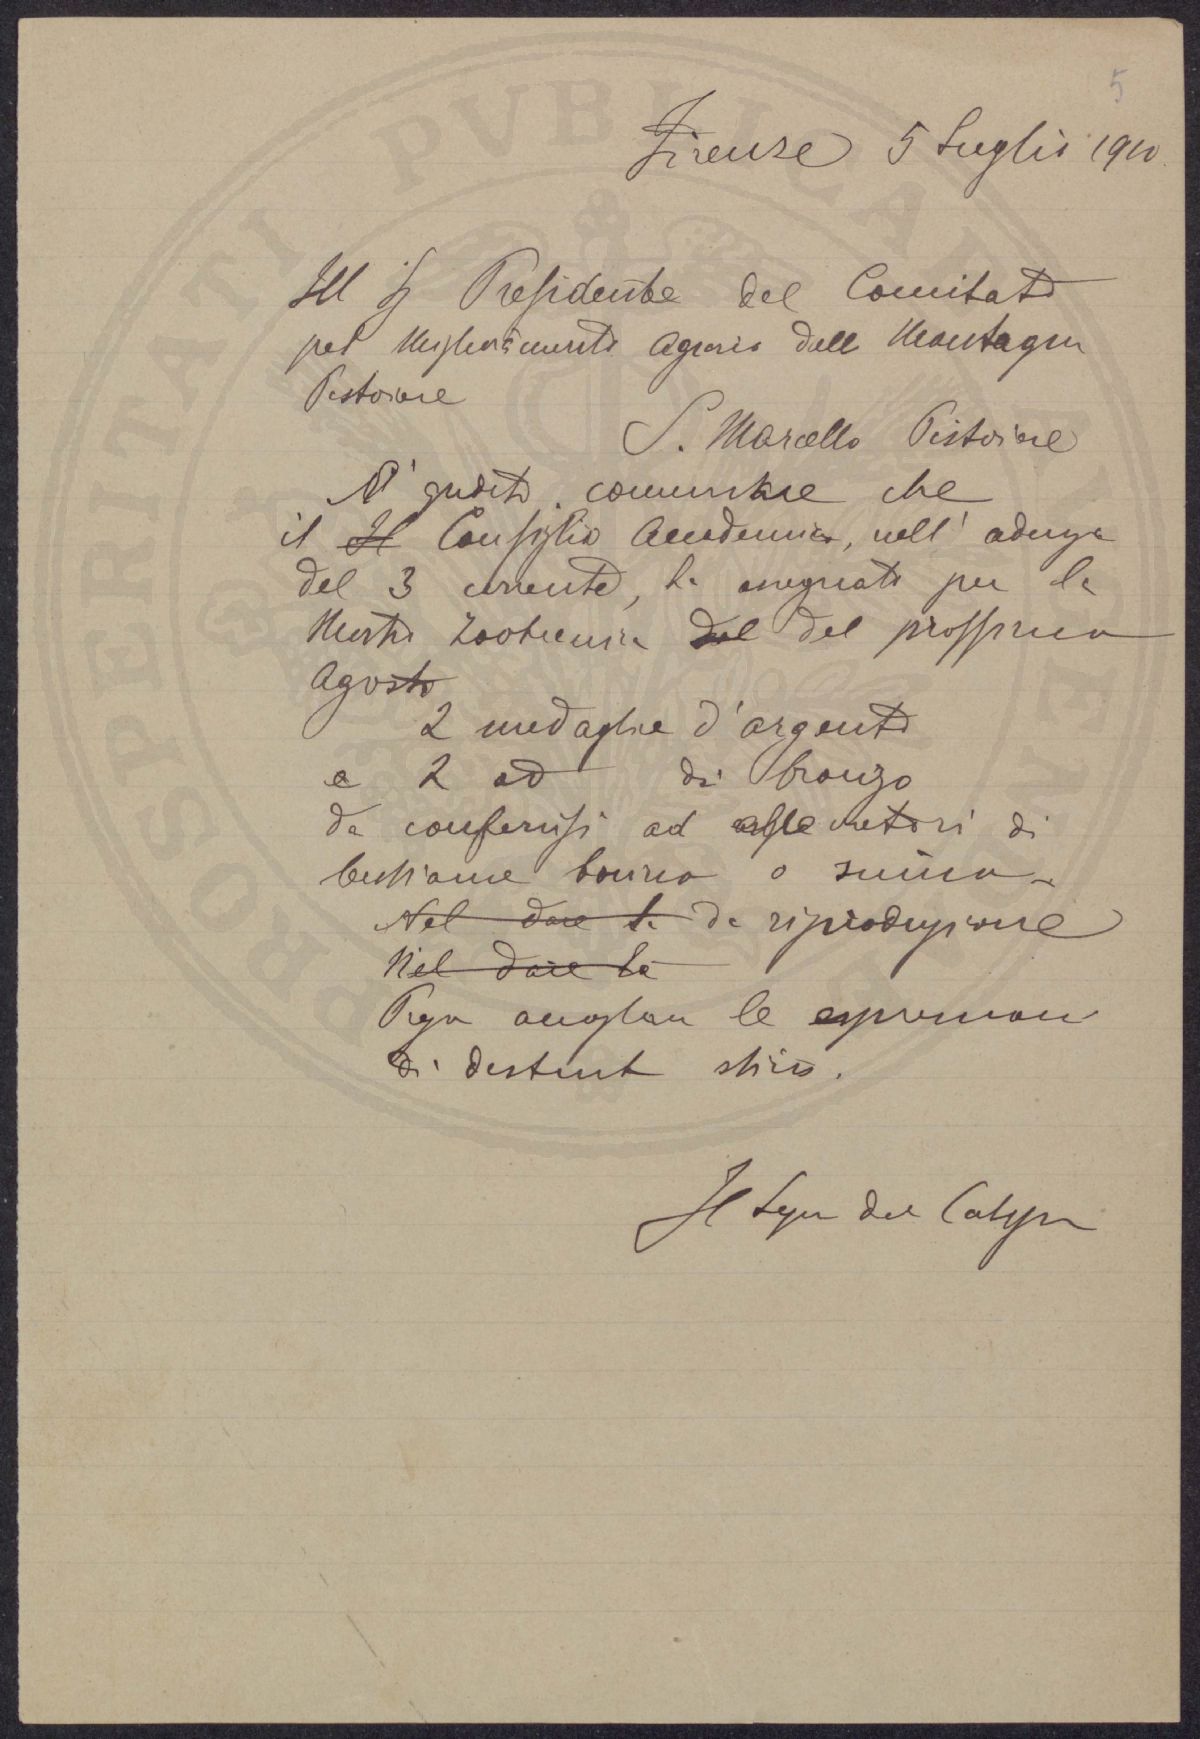 5
Firenze 5 Luglio 1910.
Ill Sg Presidente del Comitato
pel Miglioramento Agrario dell Montagna
Pistoiese
S. Marcello Pistoiese
M' gradito comunicare che
il Il Consiglio Accademico, nell' adunza
del 3 corrente, ha assegnato per la
Mostra Zootecnica del del prossimo
Agosto
2 medaglie d'argento
e 2 ad di bronzo
da conferirsi ad allevatori di
bestiame bovino o suino
Nel dare la da riproduzione
Nel dare la
Prego accogliere le espressioni
di distint stima.
Il Segr del
PROSPERITATI PVBLICAE